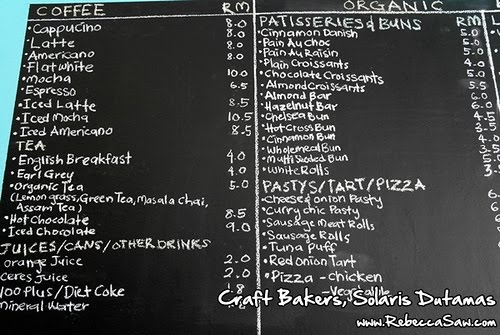 COFFEE RM
• Cappucino 8.0
• Latte 8.0
• Americano 8.0
• Flat white 8.0
• Mocha 10.0
• Espresso 6.5
• Iced Latte 8.5
• Iced Mocha 10.5
• Iced Americano 8.5
TEA
• English Breakfast 4.0
• Earl Grey 4.0
• Organic Tea 5.0
(Lemon grass, Green Tea, Masala Chai,
Assam Tea)
• Hot Chocolate 8.5
• Iced Chocolate 9.0
JUICES/CANS/OTHER DRINKS
orange Juice 2.0
ceres Juice 2.0
100 Plus/Diet Coke
Mineral Water
ORGANIC
PATISSERIES & BUNS RM
• Cinnamon Danish 5.0
• Pain Au Choc 5.0
• Pain Au Raisin 5.0
• Plain Croissants 4.0
• Chocolate Croissants 5.0
• Almond Croissants 5.5
• Almond Bar 6.0
• Hazelnut Bar 6.0
• Chelsea Bun
• Hot Cross Bun
• Cinnamon Bun
• Wholemeal Bun
• Multi Seeded Bun
• White Rolls
PASTYS/TART/PIZZA
• Cheese & onion Pasty
• Curry chic Pasty
• Sausage Meat Rolls
• Sausage Rolls
• Tuna Puff
• Red Onion Tart
• Pizza - chicken
- Vegetable
Craft Bakers, Solaris Dutamas
www.RebeccaSaw.com